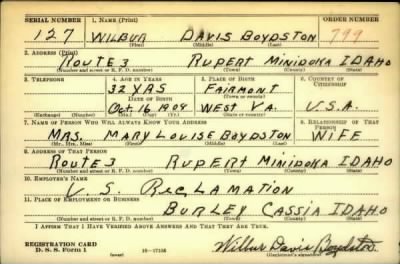 SERIAL NUMBER 1. NAME (Print) ORDER NUMBER
127 WILBUR DAVIS BOYDSTON 799
(First) (Middle) (Last)
2. ADDRESS (Print)
ROUTE 3 RUPERT MINIDOKA IDAHO
(Number and street or R. F. D. number) (Town) (County) (State)
3. TELEPHONE 4. AGE IN YEARS 5. PLACE OF BIRTH 6. COUNTRY OF CITIZENSHIP
32 YRS FAIRMONT
DATE OF BIRTH (Town or county)
OCT 16 1908 WEST VA. U.S.A.
(Exchange) (Number) (Mo.) (Day) (Yr.) (State or country)
7. NAME OF PERSON WHO WILL ALWAYS KNOW YOUR ADDRESS 8. RELATIONSHIP OF THAT PERSON
MRS. MARY LOUISE BOYDSTON WIFE
(Mr., Mrs., Miss) (First) (Middle) (Last)
9. ADDRESS OF THAT PERSON
ROUTE 3 RUPERT MINIDOKA IDAHO
(Number and street or R. F. D. number) (Town) (County) (State)
10. EMPLOYER'S NAME
U. S. RECLAMATION
11. PLACE OF EMPLOYMENT OR BUSINESS
BURLEY CASSIA IDAHO
(Number and street or R. F. D. number) (Town) (County) (State)
I AFFIRM THAT I HAVE VERIFIED ABOVE ANSWERS AND THAT THEY ARE TRUE.
REGISTRATION CARD
D. S. S. Form 1 (over) 16—17105 Wilbur Davis Boydston
(Registrant's signature)